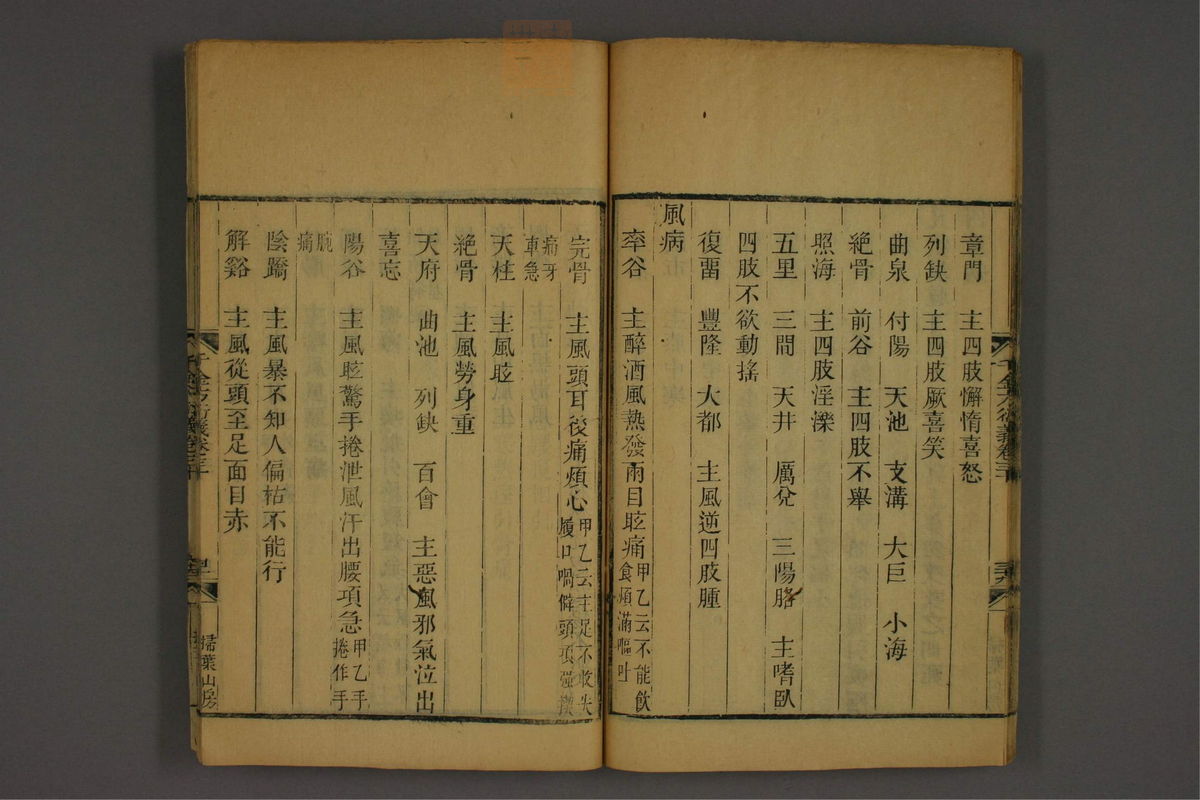 章門　主四肢懈惰喜怒
列缺　主四肢厥喜笑
曲泉　付陽　天池　支溝　大巨　小海
絶骨　前谷　主四肢不舉
照海　主四肢淫濼
五里　三間　天井　厲兌　三陽胳　主嗜臥
四肢不欲動搖
復畱　豐隆　大都　主風逆四肢腫
風病
率谷　主醉酒風熱發兩目眩痛甲乙云不能飲食煩滿嘔吐
完骨　主風頭耳後痛煩心甲乙云主足不收失履口喎僻頭項強
痛牙車急
天柱　主風眩
絶骨　主風勞身重
天府　曲池　列缺　百會　主惡風邪氣泣出
喜忘
陽谷　主風眩驚手捲泄風汗出腰項急甲乙手捲作手
腕痛
陰蹻　主風暴不知人偏枯不能行
解谿　主風從頭至足面目赤
千金方衍義卷三十
掃葉山房